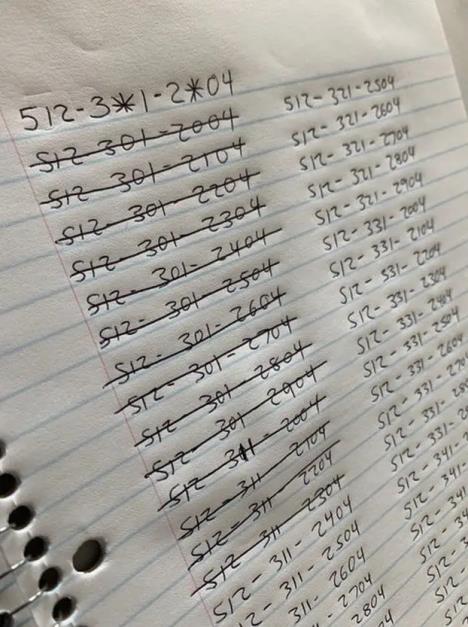 512-3*1-2*04
512-301-2004
512-301-2104
512-301-2204
512-301-2304
512-301-2404
512-301-2504
512-301-2604
512-301-2704
512-301-2804
512-301-2904
512-311-2004
512-311-2104
512-311-2204
512-311-2304
512-311-2404
512-311-2504
311-2604
2704
2804
512-321-2504
512-321-2604
512-321-2704
512-321-2804
512-321-2904
512-331-2004
512-331-2104
512-331-2204
512-331-2304
512-331-2404
512-331-2504
512-331-2604
512-331-
512-331-
512-331-
512-341-
512-341-
512-341
512-3
512-
512-